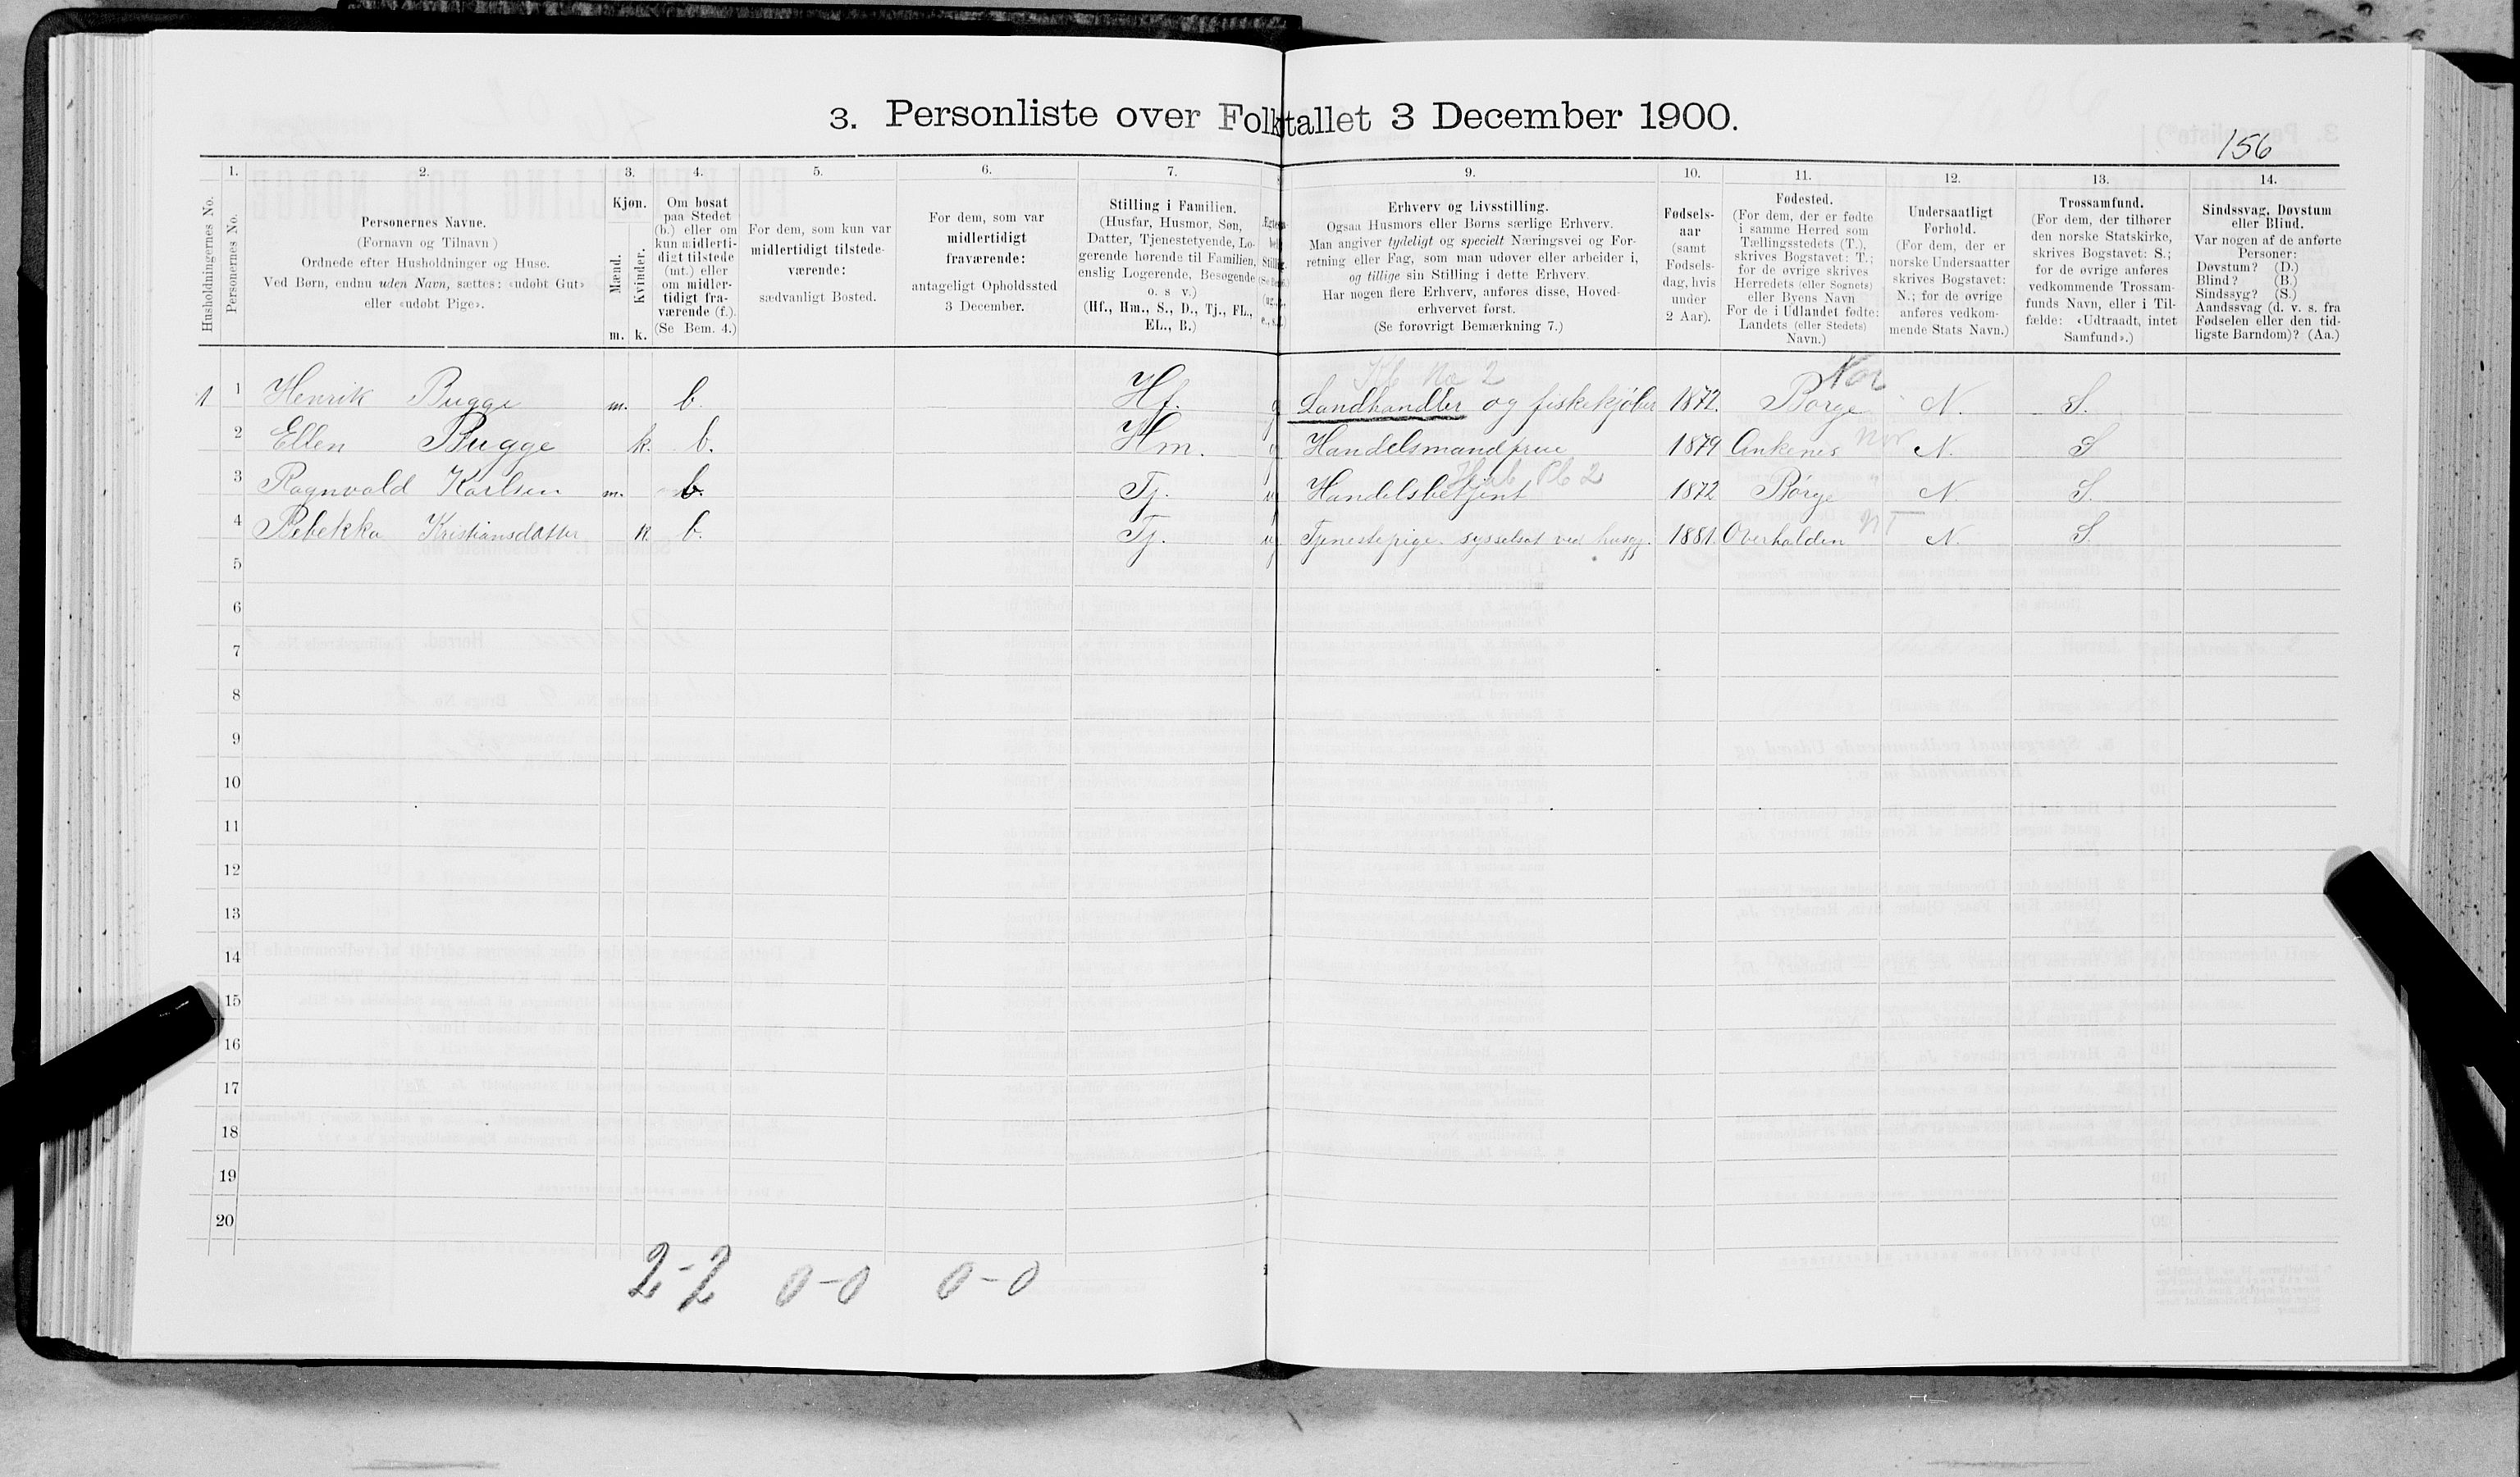 3. Personliste over Folketallet 3 December 1900.
156
Husholdningernes No.
1.
Personernes No.
2.
Personernes Navne.
(Fornavn og Tilnavn)
Ordnede efter Husholdninger og Huse.
Ved Børn, endnu uden Navn, sættes: «udøbt Gut»
eller «udøbt Pige».
3.
Kjøn.
Mænd.
Kvinder.
m. k.
4.
Om bosat
paa Stedet
(b.) eller om
kun midlerti-
digt tilstede
(mt.) eller
om midler-
tidigt fra-
værende (f.).
(Se Bem. 4.)
5.
For dem, som kun var
midlertidigt tilstede-
værende:
sædvanligt Bosted.
6.
For dem, som var
midlertidigt
fraværende:
antageligt Opholdssted
3 December.
7.
Stilling i Familien.
(Husfar, Husmor, Søn,
Datter, Tjenestetyende, Lo-
gerende hørende til Familien,
enslig Logerende, Besøgende
o. s v.)
(Hf., Hm., S., D., Tj., FL.,
EL., B.)
9.
Erhverv og Livsstilling.
Ogsaa Husmors eller Børns særlige Erhverv.
Man angiver tydeligt og specielt Næringsvei og For-
retning eller Fag, som man udøver eller arbeider i,
og tillige sin Stilling i dette Erhverv.
Har nogen flere Erhverv, anføres disse, Hoved-
erhvervet først.
(Se forøvrigt Bemærkning 7.)
10.
Fødsels-
aar
(samt
Fødsels-
dag, hvis
under
2 Aar).
11.
Fødested.
(For dem, der er fødte
i samme Herred som
Tællingsstedets (T.),
skrives Bogstavet: T.;
for de øvrige skrives
Herredets (eller Sognets)
eller Byens Navn
For de i Udlandet fødte:
Landets (eller Stedets)
Navn.)
12.
Undersaatligt
Forhold.
(For dem, der er
norske Undersaatter
skrives Bogstavet:
N.; for de øvrige
anføres vedkom-
mende Stats Navn.)
13.
Trossamfund.
(For dem, der tilhører
den norske Statskirke,
skrives Bogstavet: S.;
for de øvrige anføres
vedkommende Trossam-
funds Navn, eller i Til-
fælde: «Udtraadt, intet
Samfund».)
14.
Sindssvag, Døvstum
eller Blind.
Var nogen af de anførte
Personer:
Døvstum? (D.)
Blind? (B.)
Sindssyg? (S.)
Aandssvag (d. v. s. fra
Fødselen eller den tid-
ligste Barndom)? (Aa.)
No 2 Nor
1 1 Henrik Bugge m. b. Hf. g Landhandler og fiskekjøber 1872. Borge N. S.
2 Ellen Bugge k. b. Hm. g Handelsmandfrue 1879 Ankenes Nor N. S
3 Ragnvald Karlsen m. b. Tj. ug Handelsbetjent 1872 Børge " N. S.
4 Rebekka Kristiansdatter k. b. Tj. ug Tjenestepige sysselsat ved husgj. 1881. Overhalden NT N. S.
5
6
7
8
9
10
11
12
13
14
15
16
17
18
19
20
2-2 0-0 0-0